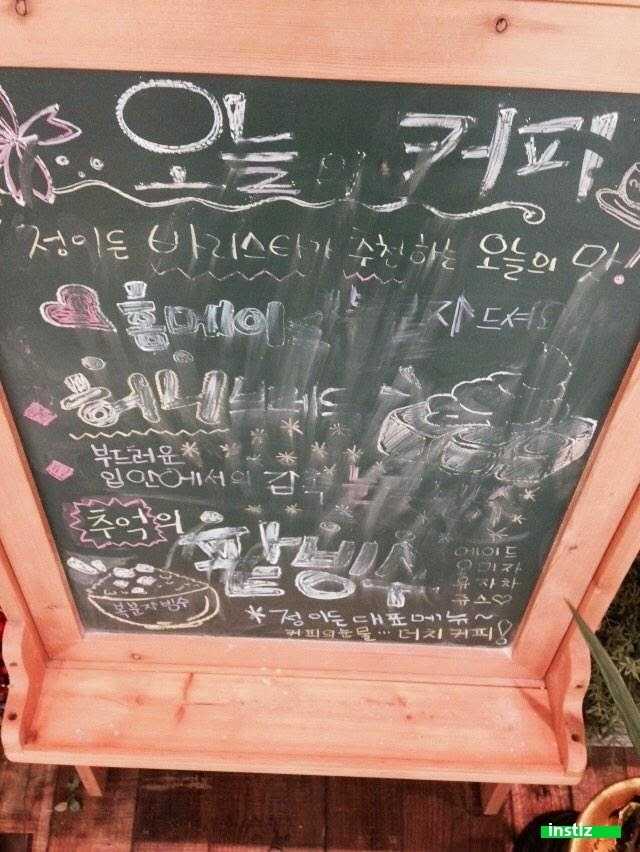 오늘의 커피
정이든 바리스타가 추천하는 오늘의 마
홈메이 드셔요
허니브레드
부드러운
입안에서의 감촉
추억의 팥빙수
복분자빙수
메이드
오미자
유자차
쥬스♡
*정이든 대표메뉴~
커피의눈물... 더치커피!
instiz